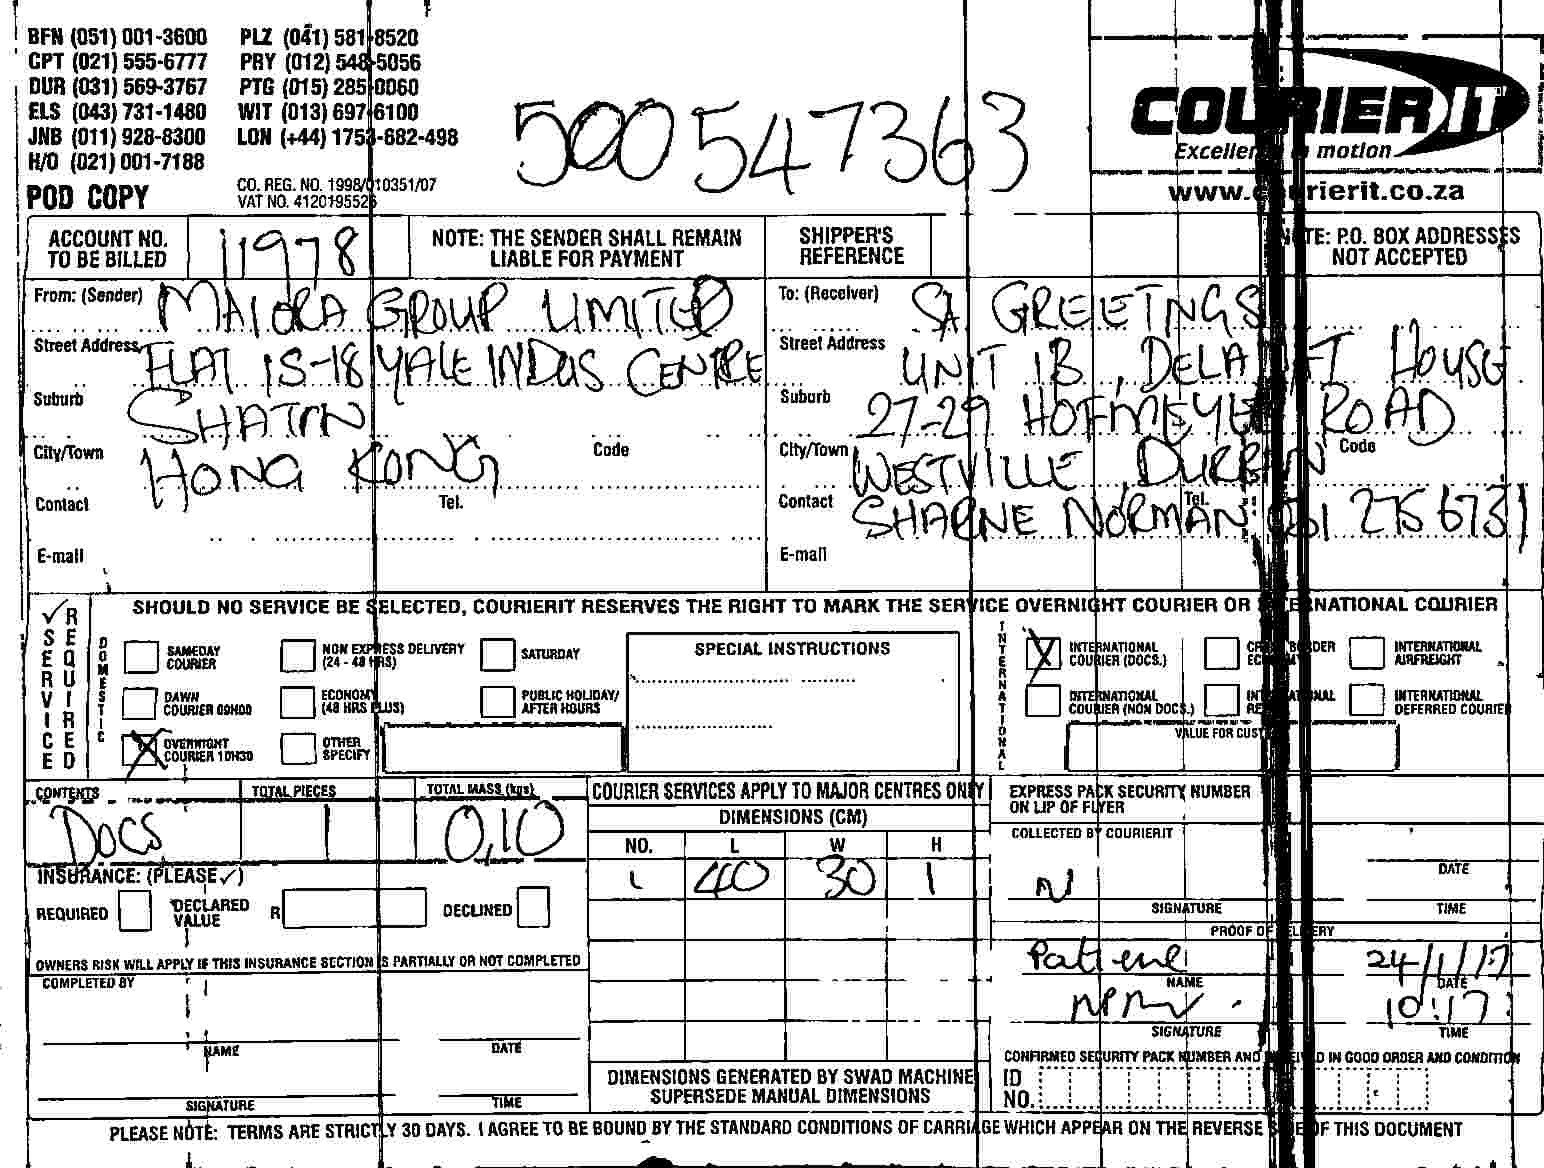 BFN (051) 001-3600 PLZ (041) 581-8520
CPT (021) 555-6777 PRY (012) 548-5056
DUR (031) 569-3767 PTG (015) 285-0060
ELS (043) 731-1480 WIT (013) 697-6100
JNB (011) 928-8300 LON (+44) 1753-682-498
H/O (021) 001-7188
POD COPY
CO. REG. NO. 1998/010351/07
VAT NO. 4120195526
500547363
COURIER IT
Excellence in motion
www.courierit.co.za
ACCOUNT NO. TO BE BILLED 11978
NOTE: THE SENDER SHALL REMAIN LIABLE FOR PAYMENT
SHIPPER'S REFERENCE
NOTE: P.O. BOX ADDRESSES NOT ACCEPTED
From: (Sender) MAIORA GROUP LIMITED
Street Address FLAT 15-18 YALE INDUS CENTRE
Suburb SHATIN
City/Town HONG KONG Code
Contact Tel.
E-mail
To: (Receiver) SA GREETINGS
Street Address UNIT 1B, DELA HOUSE
Suburb 27-29 HOFMEYER ROAD
City/Town WESTVILLE, DURBAN Code
Contact SHARNE NORMAN Tel. 031 275 6731
E-mail
✓ SERVICE REQUIRED
SHOULD NO SERVICE BE SELECTED, COURIERIT RESERVES THE RIGHT TO MARK THE SERVICE OVERNIGHT COURIER OR INTERNATIONAL COURIER
DOMESTIC
SAMEDAY COURIER
NON EXPRESS DELIVERY (24 - 48 HRS)
SATURDAY
DAWN COURIER 09H00
ECONOMY (48 HRS PLUS)
PUBLIC HOLIDAY/ AFTER HOURS
X OVERNIGHT COURIER 10H30
OTHER SPECIFY
SPECIAL INSTRUCTIONS
INTERNATIONAL
X INTERNATIONAL COURIER (DOCS.)
CROSS BORDER ECONOMY
INTERNATIONAL AIRFREIGHT
INTERNATIONAL COURIER (NON DOCS.)
INTERNATIONAL
INTERNATIONAL DEFERRED COURIER
VALUE FOR CUSTOMS
CONTENTS TOTAL PIECES TOTAL MASS (kgs)
DOCS 1 0,10
COURIER SERVICES APPLY TO MAJOR CENTRES ONLY
DIMENSIONS (CM)
NO. L W H
1 40 30 1
DIMENSIONS GENERATED BY SWAD MACHINE
SUPERSEDE MANUAL DIMENSIONS
INSURANCE: (PLEASE ✓)
REQUIRED DECLARED VALUE R DECLINED
OWNERS RISK WILL APPLY IF THIS INSURANCE SECTION IS PARTIALLY OR NOT COMPLETED
COMPLETED BY
NAME DATE
SIGNATURE TIME
EXPRESS PACK SECURITY NUMBER
ON LIP OF FLYER
COLLECTED BY COURIERIT
DATE
SIGNATURE TIME
PROOF OF DELIVERY
24/1/17
NAME DATE
10:17
SIGNATURE TIME
CONFIRMED SECURITY PACK NUMBER AND RECEIVED IN GOOD ORDER AND CONDITION
ID NO.
PLEASE NOTE: TERMS ARE STRICTLY 30 DAYS. I AGREE TO BE BOUND BY THE STANDARD CONDITIONS OF CARRIAGE WHICH APPEAR ON THE REVERSE SIDE OF THIS DOCUMENT